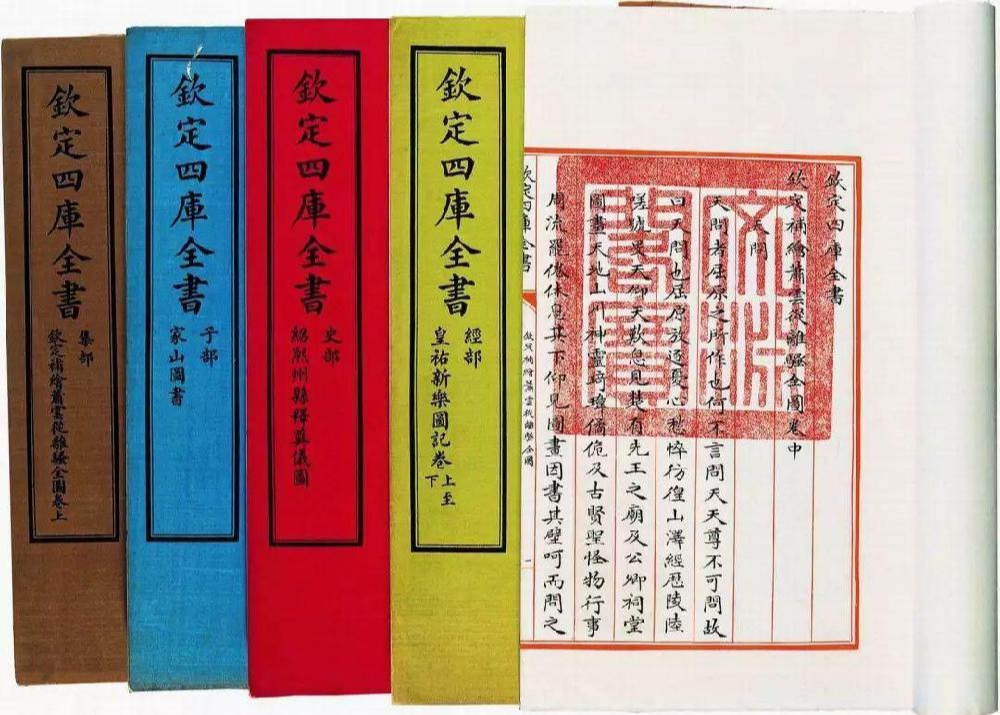 欽定四庫全書
欽定補繪蕭雲從離騷全圖卷中
天問
天問者屈原之所作也何不言問天天尊不可問故
曰天問也屈原放逐憂心愁悴彷徨山澤經歷陵陸
嗟號旻天仰天歎息見楚有先王之廟及公卿祠堂
圖畫天地山川神靈琦瑋僪佹及古賢聖怪物行事
周流罷倦休息其下仰見圖畫因書其壁呵而問之
欽定四庫全書
欽定補繪蕭雲從離騷全圖
一
欽定四庫全書
經部
皇祐新樂圖記卷上至下
欽定四庫全書
史部
紹熙州縣釋奠儀圖
欽定四庫全書
子部
家山圖書
欽定四庫全書
集部
欽定補繪蕭雲從離騷全圖卷上